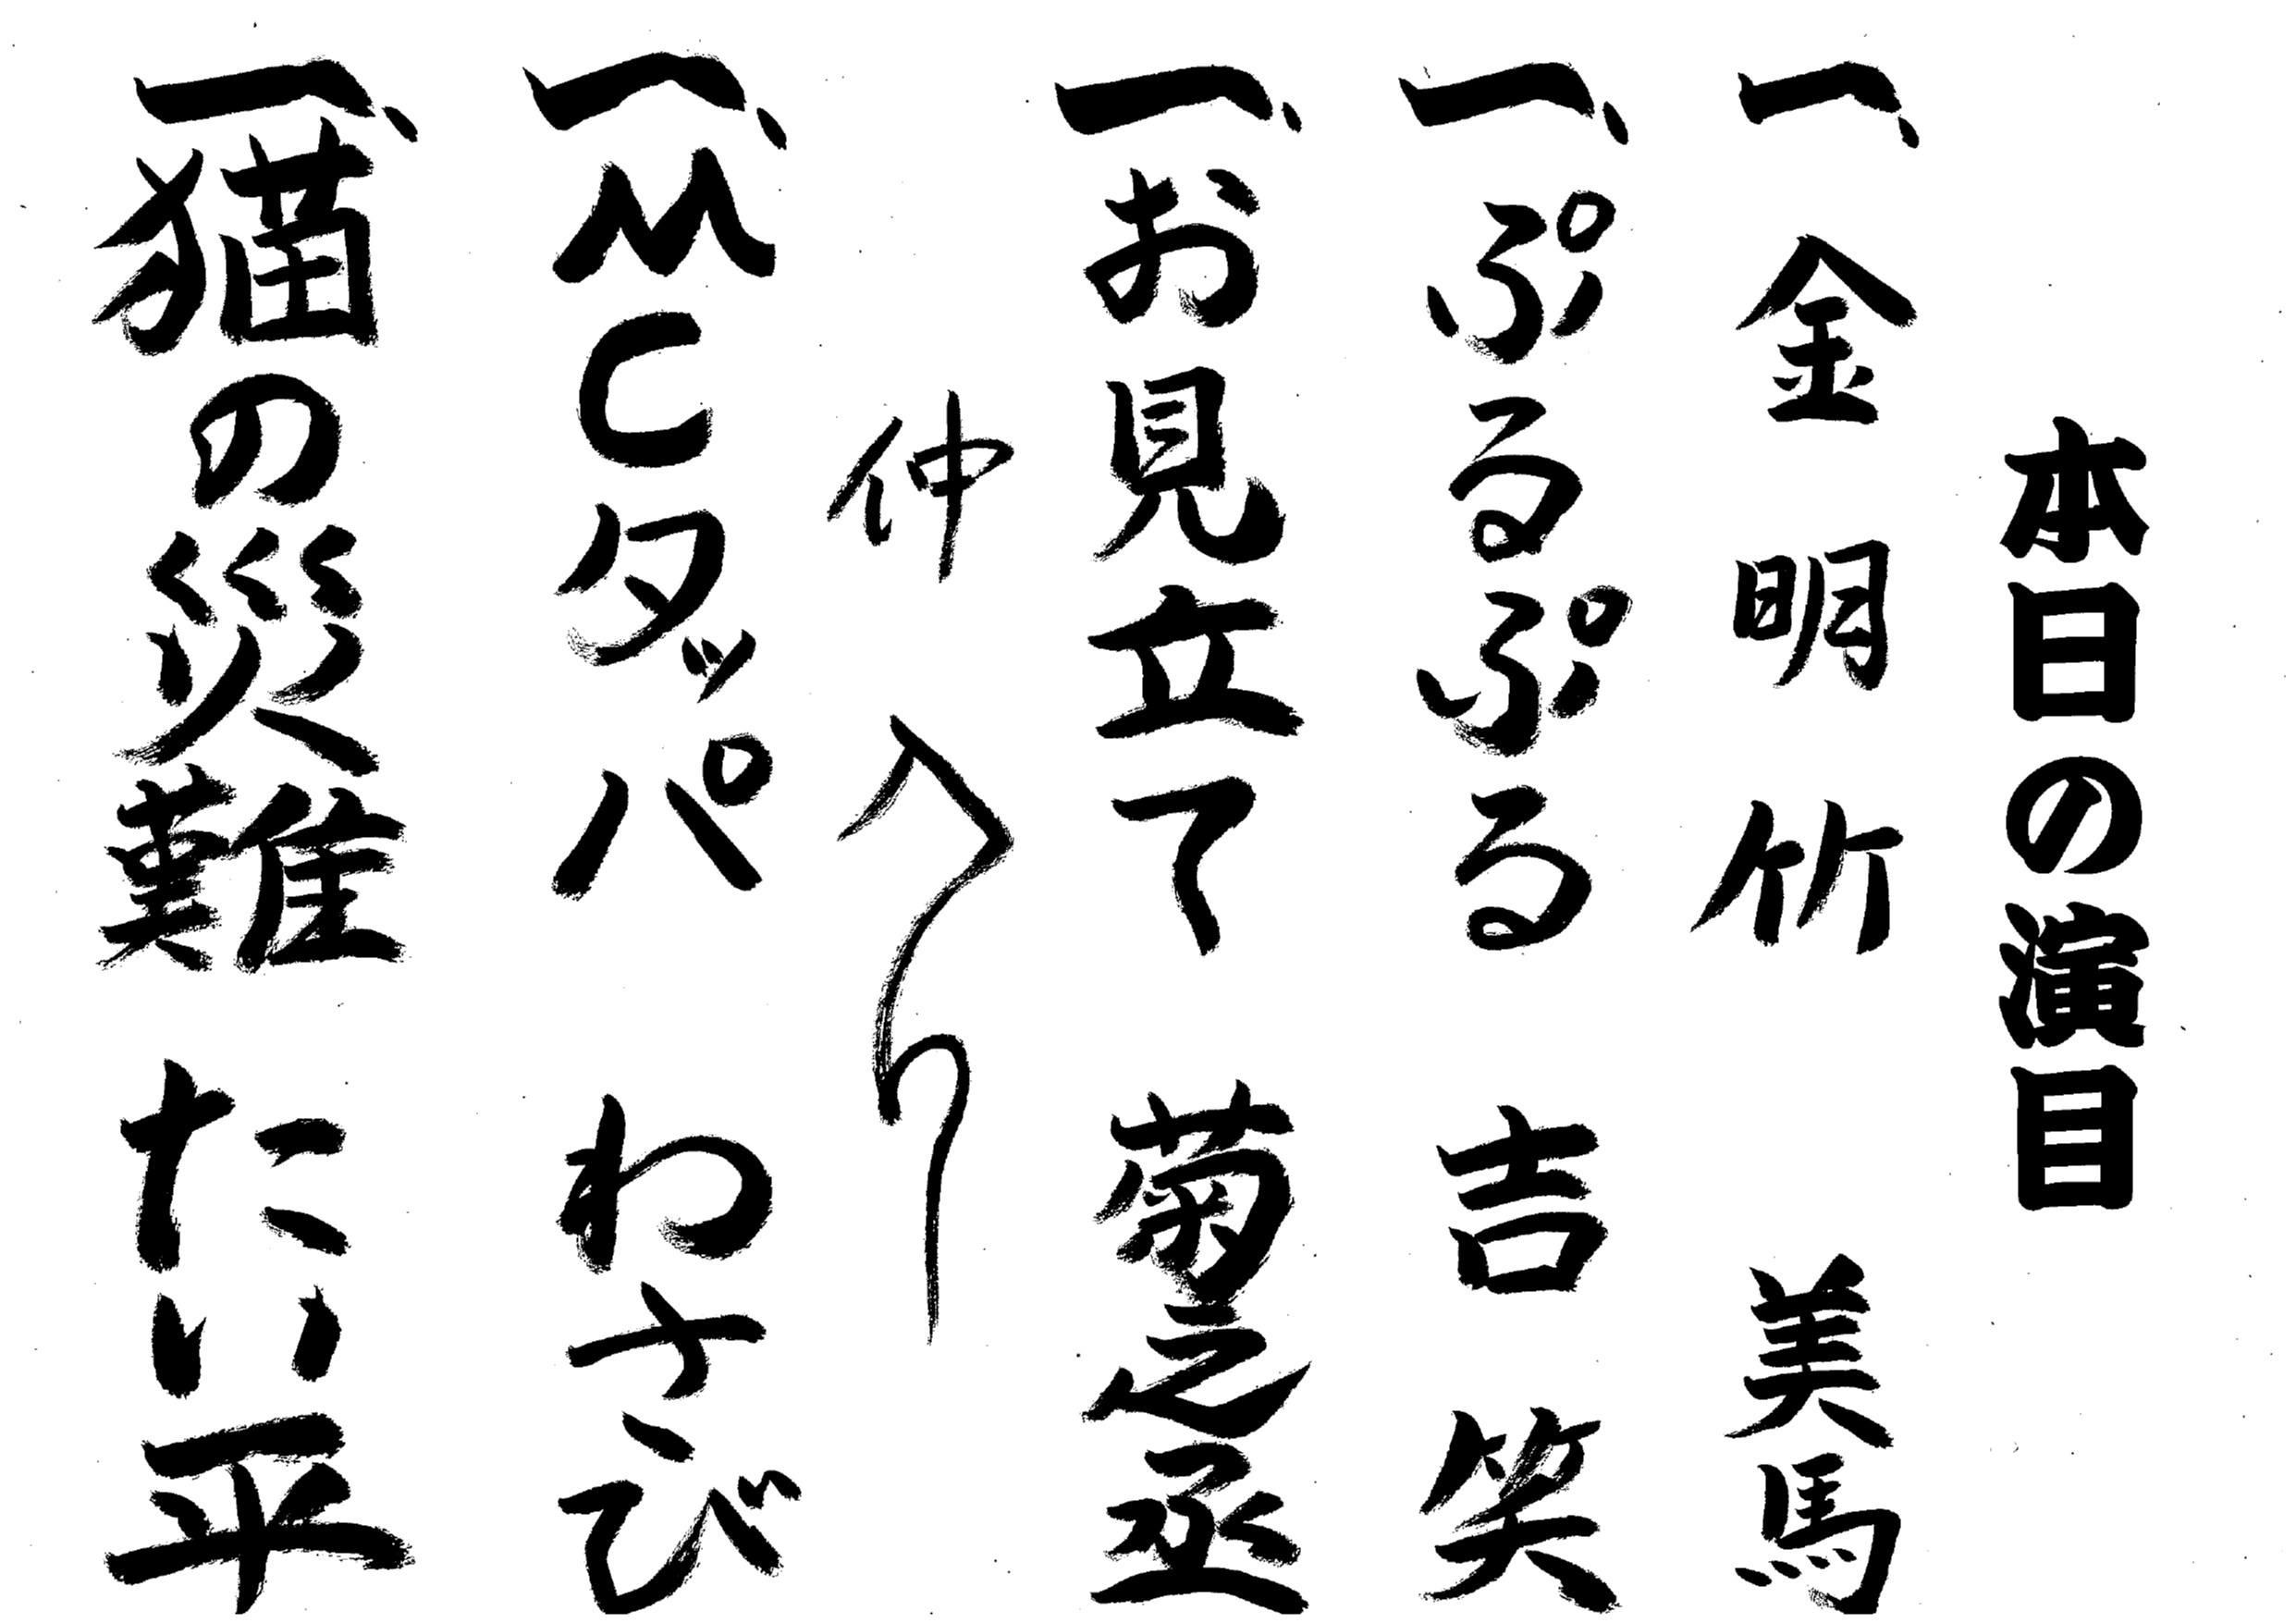 本日の演目
一、金明竹 美馬
一、ぷるぷる 吉笑
一、お見立て 菊之丞
仲入り
一、MCタッパ わさび
一、猫の災難 たい平